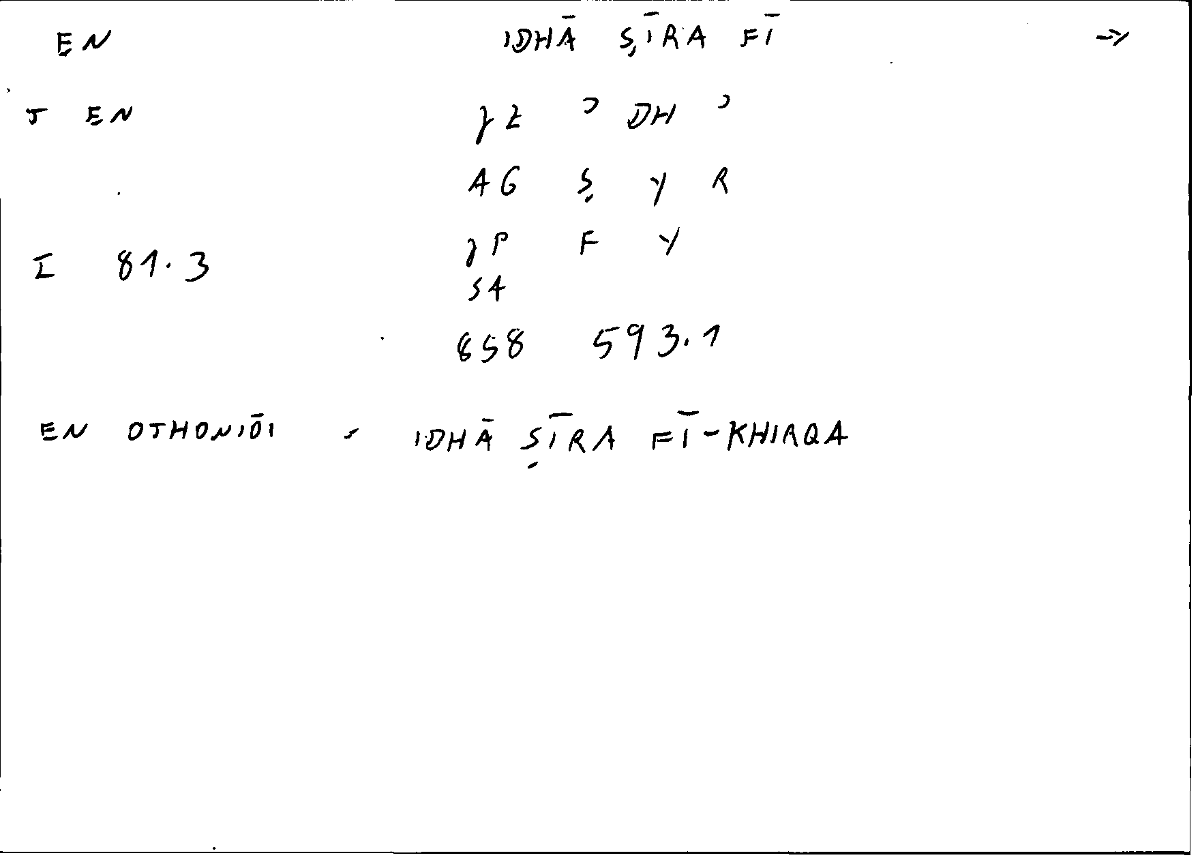 EN IDHĀ ṢĪRA FĪ →
J EN γZ ʾ DH ʾ
AG Ṣ Y R
γP F Y
I 81.3
S4
658 593.1
EN OTHONIŌI - IDHĀ ṢĪRA FĪ-KHIRQA